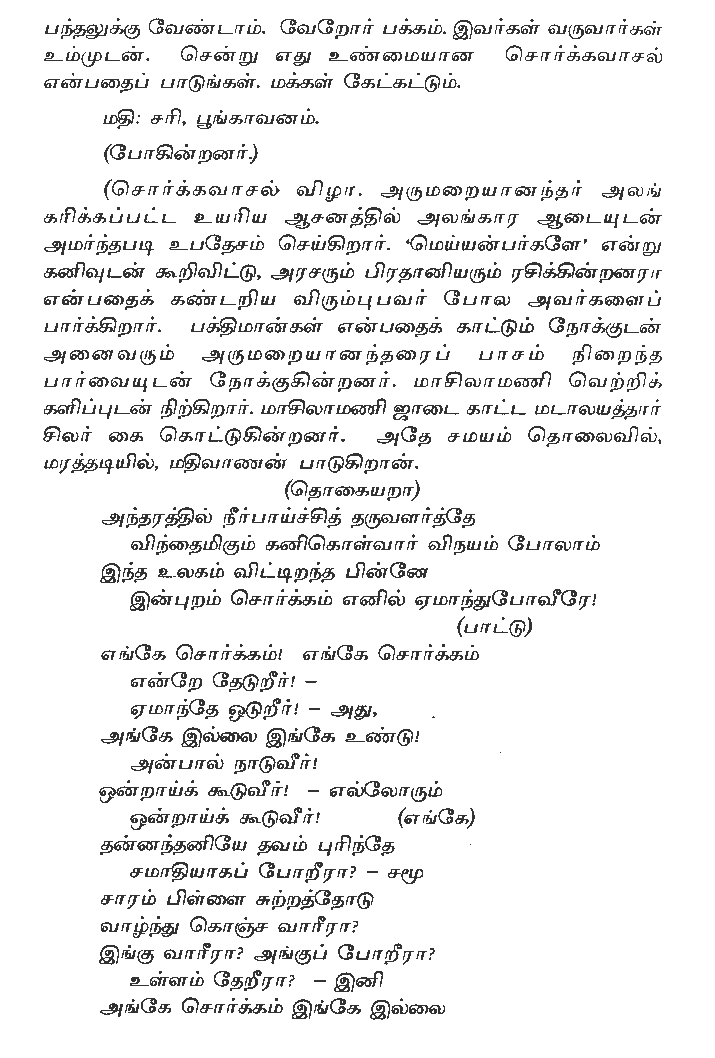 பந்தலுக்கு வேண்டாம். வேறோர் பக்கம். இவர்கள் வருவார்கள்
உம்முடன். சென்று எது உண்மையான சொர்க்கவாசல்
என்பதைப் பாடுங்கள். மக்கள் கேட்கட்டும்.
மதி: சரி, பூங்காவனம்.
(போகின்றனர்.)
(சொர்க்கவாசல் விழா. அருமறையானந்தர் அலங்
கரிக்கப்பட்ட உயரிய ஆசனத்தில் அலங்கார ஆடையுடன்
அமர்ந்தபடி உபதேசம் செய்கிறார். 'மெய்யன்பர்களே' என்று
கனிவுடன் கூறிவிட்டு, அரசரும் பிரதானியரும் ரசிக்கின்றனரா
என்பதைக் கண்டறிய விரும்புபவர் போல அவர்களைப்
பார்க்கிறார். பக்திமான்கள் என்பதைக் காட்டும் நோக்குடன்
அனைவரும் அருமறையானந்தரைப் பாசம் நிறைந்த
பார்வையுடன் நோக்குகின்றனர். மாசிலாமணி வெற்றிக்
களிப்புடன் நிற்கிறார். மாசிலாமணி ஜாடை காட்ட மடாலயத்தார்
சிலர் கை கொட்டுகின்றனர். அதே சமயம் தொலைவில்,
மரத்தடியில், மதிவாணன் பாடுகிறான்.
(தொகையறா)
அந்தரத்தில் நீர்பாய்ச்சித் தருவளர்த்தே
விந்தைமிகும் கனிகொள்வார் விநயம் போலாம்
இந்த உலகம் விட்டிறந்த பின்னே
இன்புறம் சொர்க்கம் எனில் ஏமாந்துபோவீரே!
(பாட்டு)
எங்கே சொர்க்கம்! எங்கே சொர்க்கம்
என்றே தேடுறீர்! –
ஏமாந்தே ஒடுறீர்! – அது,
அங்கே இல்லை இங்கே உண்டு!
அன்பால் நாடுவீர்!
ஒன்றாய்க் கூடுவீர்! – எல்லோரும்
ஒன்றாய்க் கூடுவீர்! (எங்கே)
தன்னந்தனியே தவம் புரிந்தே
சமாதியாகப் போறீரா? – சமூ
சாரம் பிள்ளை சுற்றத்தோடு
வாழ்ந்து கொஞ்ச வாரீரா?
இங்கு வாரீரா? அங்குப் போறீரா?
உள்ளம் தேறீரா? – இனி
அங்கே சொர்க்கம் இங்கே இல்லை